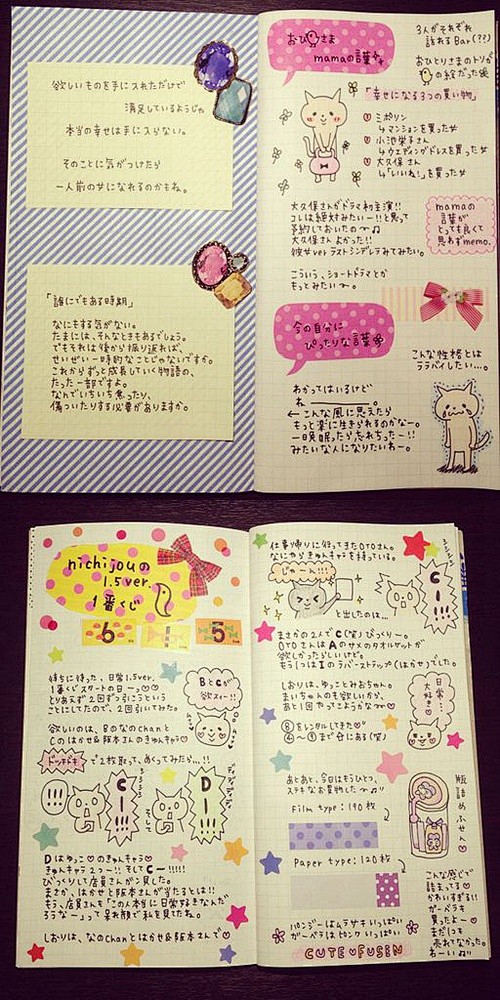 欲しいものを手に入れただけで
満足しているようじゃ
本当の幸せは手に入らない。
そのことに気がつけたら
一人前の女になれるのかもね。
「誰にでもある時期」
なにもする気がない。
たまには、そんなときもあるでしょう。
でもそれは後から振り返れば、
せいぜい一時的なことじゃないですか。
これからずっと成長していく物語の、
たった一部ですよ。
なんでいちいち焦ったり、
傷ついたりする必要がありますか。
おひとりさま
mamaの言葉
3人がそれぞれ
訪れるBar(??)
おひとりさまのトリが
の絵だった娘
「幸せになる3つの買い物」
① ミポリン
↳マンションを買った女
② 小池栄子さん
↳ウェディングドレスを買った女
③ 大久保さん
↳「いいね!」を買った女
大久保さんがドラマ初主演!!
コレは絶対みたいー!!と思って
予約しておいたの〜♫
大久保さん よかった!!
彼女ver ラストシンデレラみてみたい。
こういう、ショートドラマとか
もっとみたい〜。
mamaの
言葉が
とっても良くて
思わずmemo.
今の自分に
ぴったりな言葉
こんな性格とは
ララバイしたい…。
わかってはいるけど
ね
← こんな風に思えたら
もっと楽に生きられるのかなー。
一日眠ったら忘れちったー!!
みたいな人になりたいわー。
nichijouの
1.5ver.
1番くじ
6 1 5
待ちに待った、日常1.5ver.
1番くじスタートの日ーっ♡♡
とりあえず2回ずつ引こうという
ことにしてたので、2回引いてみた。
BとCが
欲スィー!!
欲しいのは、Bのなのchanと
Cのはかせ&阪本さんのきゅんキャラ♡
ドッキドキ で2枚取って、めくってみたら…!!
!!!
C!!!
そして
D!!!
Dはゆっこのきゅんキャラ♡
きゅんキャラ2つー!! そしてCー!!!!!
びっくりして店員さんガン見した。
まさか、はかせと阪本さんが当たるとは!!
もう、店員さん「この人本当に日常好きなんだ
ろうなー」って呆れ顔で私を見てたね。
しおりは、なのchanとはかせ&阪本さんで♡
仕事帰りに行ってきたOTOさん。
なにやらきゅんキャラを持っている。
じゃーん!!!
C!!!
と出したのは…
まさかの2人でC(笑)びっくりー。
OTOさんはAのサメのタオルゲットが
欲しかったらしいけど。
もう1つはIのラバーストラップ(はかせ)でした。
しおりは、ゆっことみおちゃん。
まいちゃんのも欲しいから、
あと1回やってこようかな〜♡
日常…
大好き♡
あとあと、今日はもうひとつ、
ステキなお買物した〜♫
Film type:190枚
Paper type:120枚
瓶詰めふせん♡
こんな感じで
詰まってる♡♡
かわいすぎるい!!
ガーベラも
買ったよー♡
まだ1つも
売れてなかった。
わーい♫♫
パンジーはムラサキいっぱい
ガーベラはピンクいっぱい
CUTE♥FUSEN